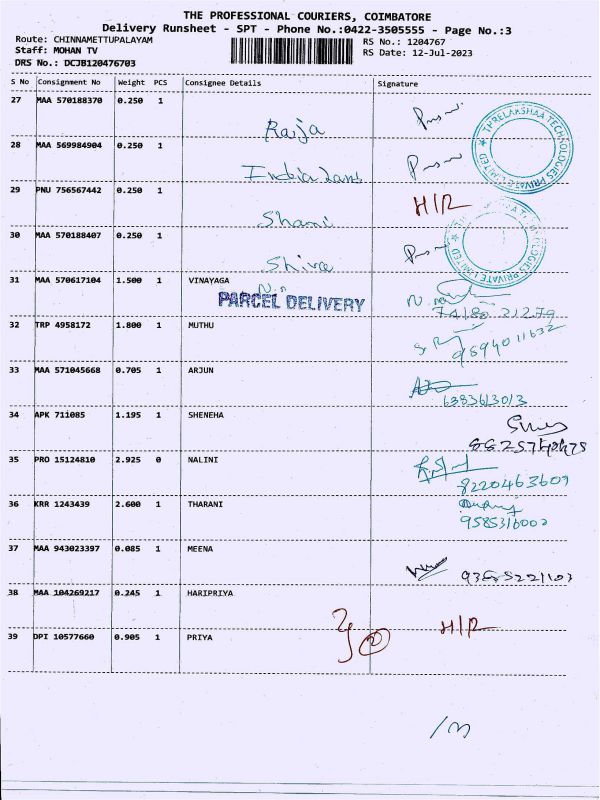 THE PROFESSIONAL COURIERS, COIMBATORE
Delivery Runsheet - SPT - Phone No.:0422-3505555 - Page No.:3
Route: CHINNAMETTUPALAYAM
RS No.: 1204767
Staff: MOHAN TV
RS Date: 12-Jul-2023
DRS No.: DCJB120476703
S No Consignment No Weight PCS Consignee Details Signature
27 MAA 570188370 0.250 1
Raja
28 MAA 569984904 0.250 1
Indialand
THRELAKSHAA TECHNOLOGIES PRIVATE LIMITED ★
29 PNU 756567442 0.250 1
H/R
Shami
30 MAA 570188407 0.250 1
Shiva
31 MAA 570617104 1.500 1 VINAYAGA
PARCEL DELIVERY
74180 21279
32 TRP 4958172 1.800 1 MUTHU
9694011632
33 MAA 571045668 0.705 1 ARJUN
6383613013
34 APK 711085 1.195 1 SHENEHA
35 PRO 15124810 2.925 0 NALINI
8220463609
36 KRR 1243439 2.600 1 THARANI
9585316002
37 MAA 943023397 0.085 1 MEENA
38 MAA 104269217 0.245 1 HARIPRIYA
H/R
39 DPI 10577660 0.905 1 PRIYA